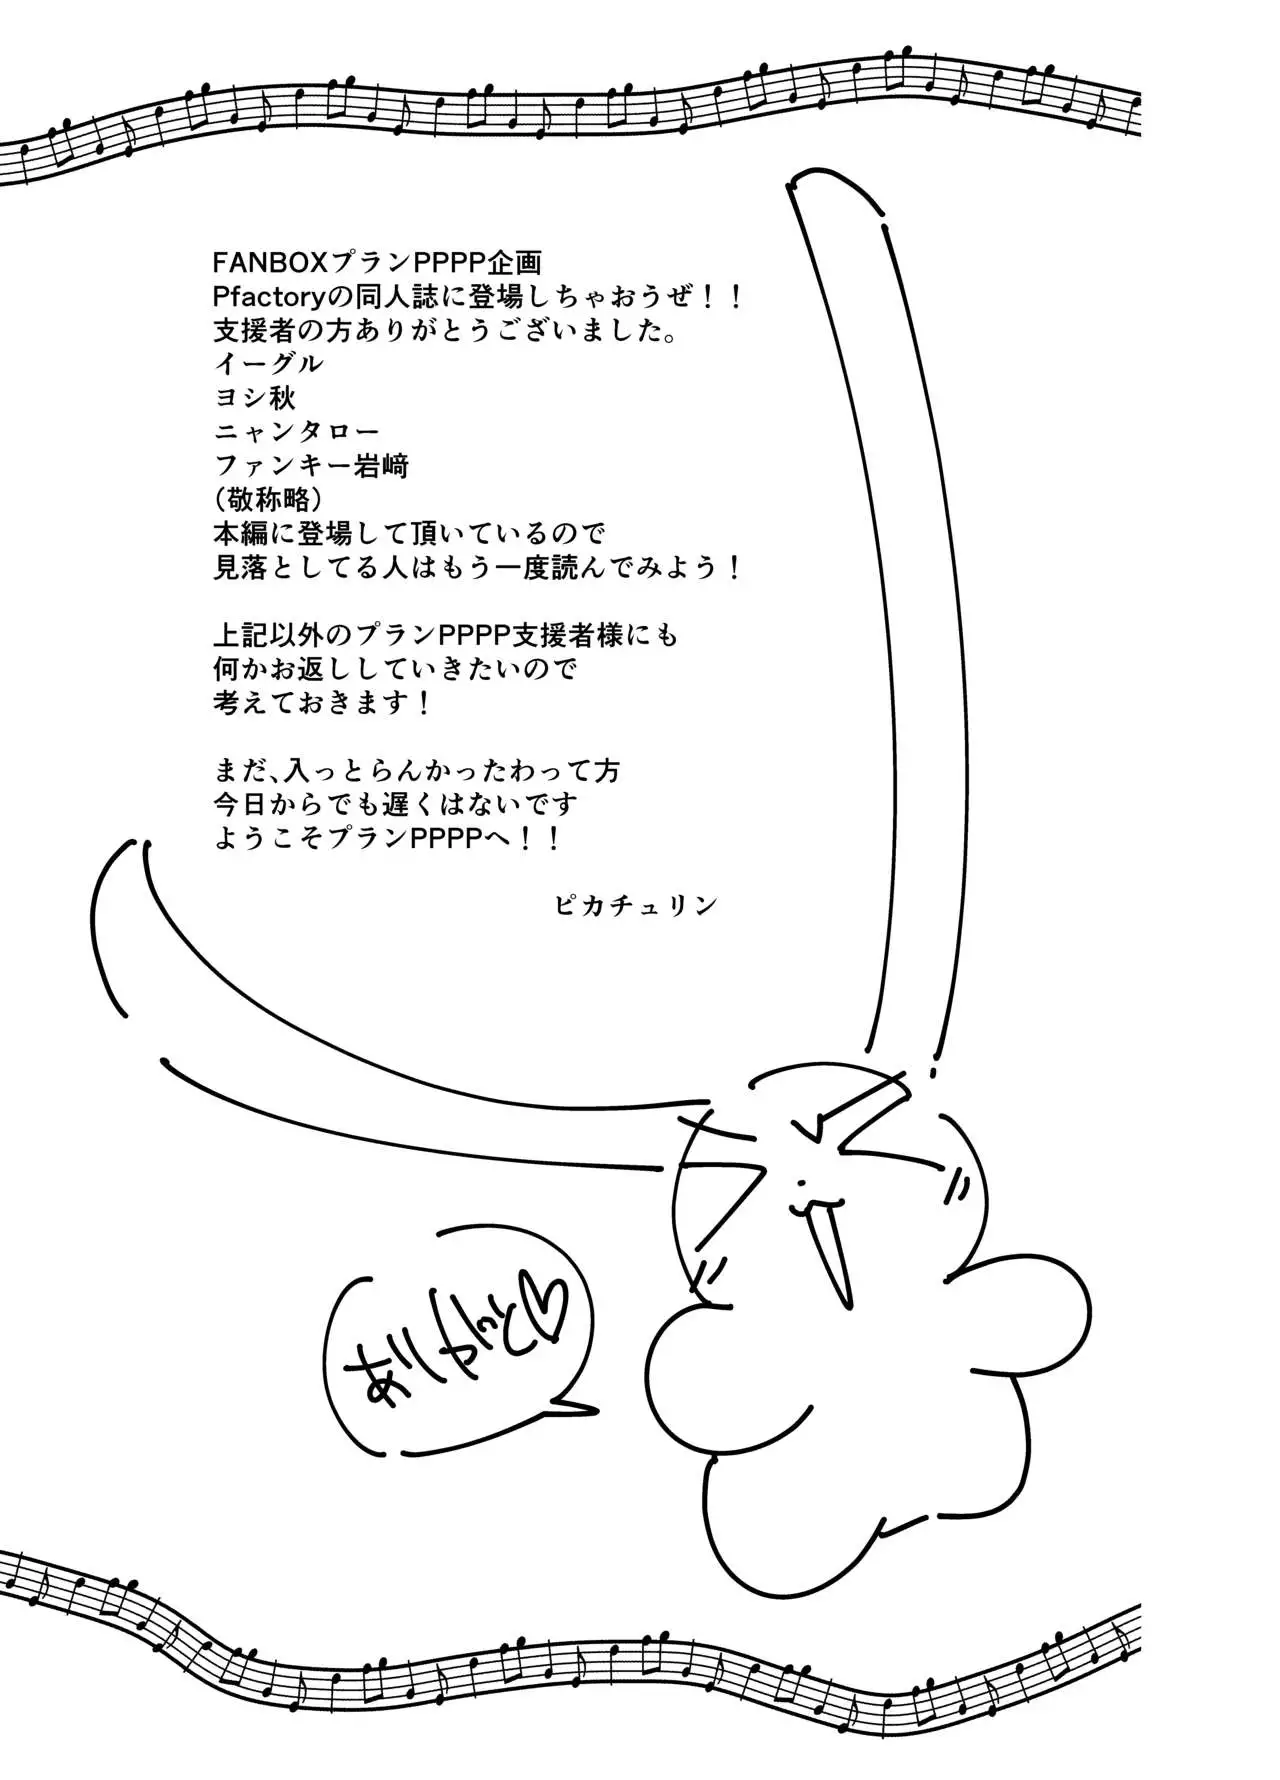 FANBOXプランPPPP企画
Pfactoryの同人誌に登場しちゃおうぜ！！
支援者の方ありがとうございました。
イーグル
ヨシ秋
ニャンタロー
ファンキー岩﨑
（敬称略）
本編に登場して頂いているので
見落としてる人はもう一度読んでみよう！
上記以外のプランPPPP支援者様にも
何かお返ししていきたいので
考えておきます！
まだ、入っとらんかったわって方
今日からでも遅くはないです
ようこそプランPPPPへ！！
ピカチュリン
ありがと♡